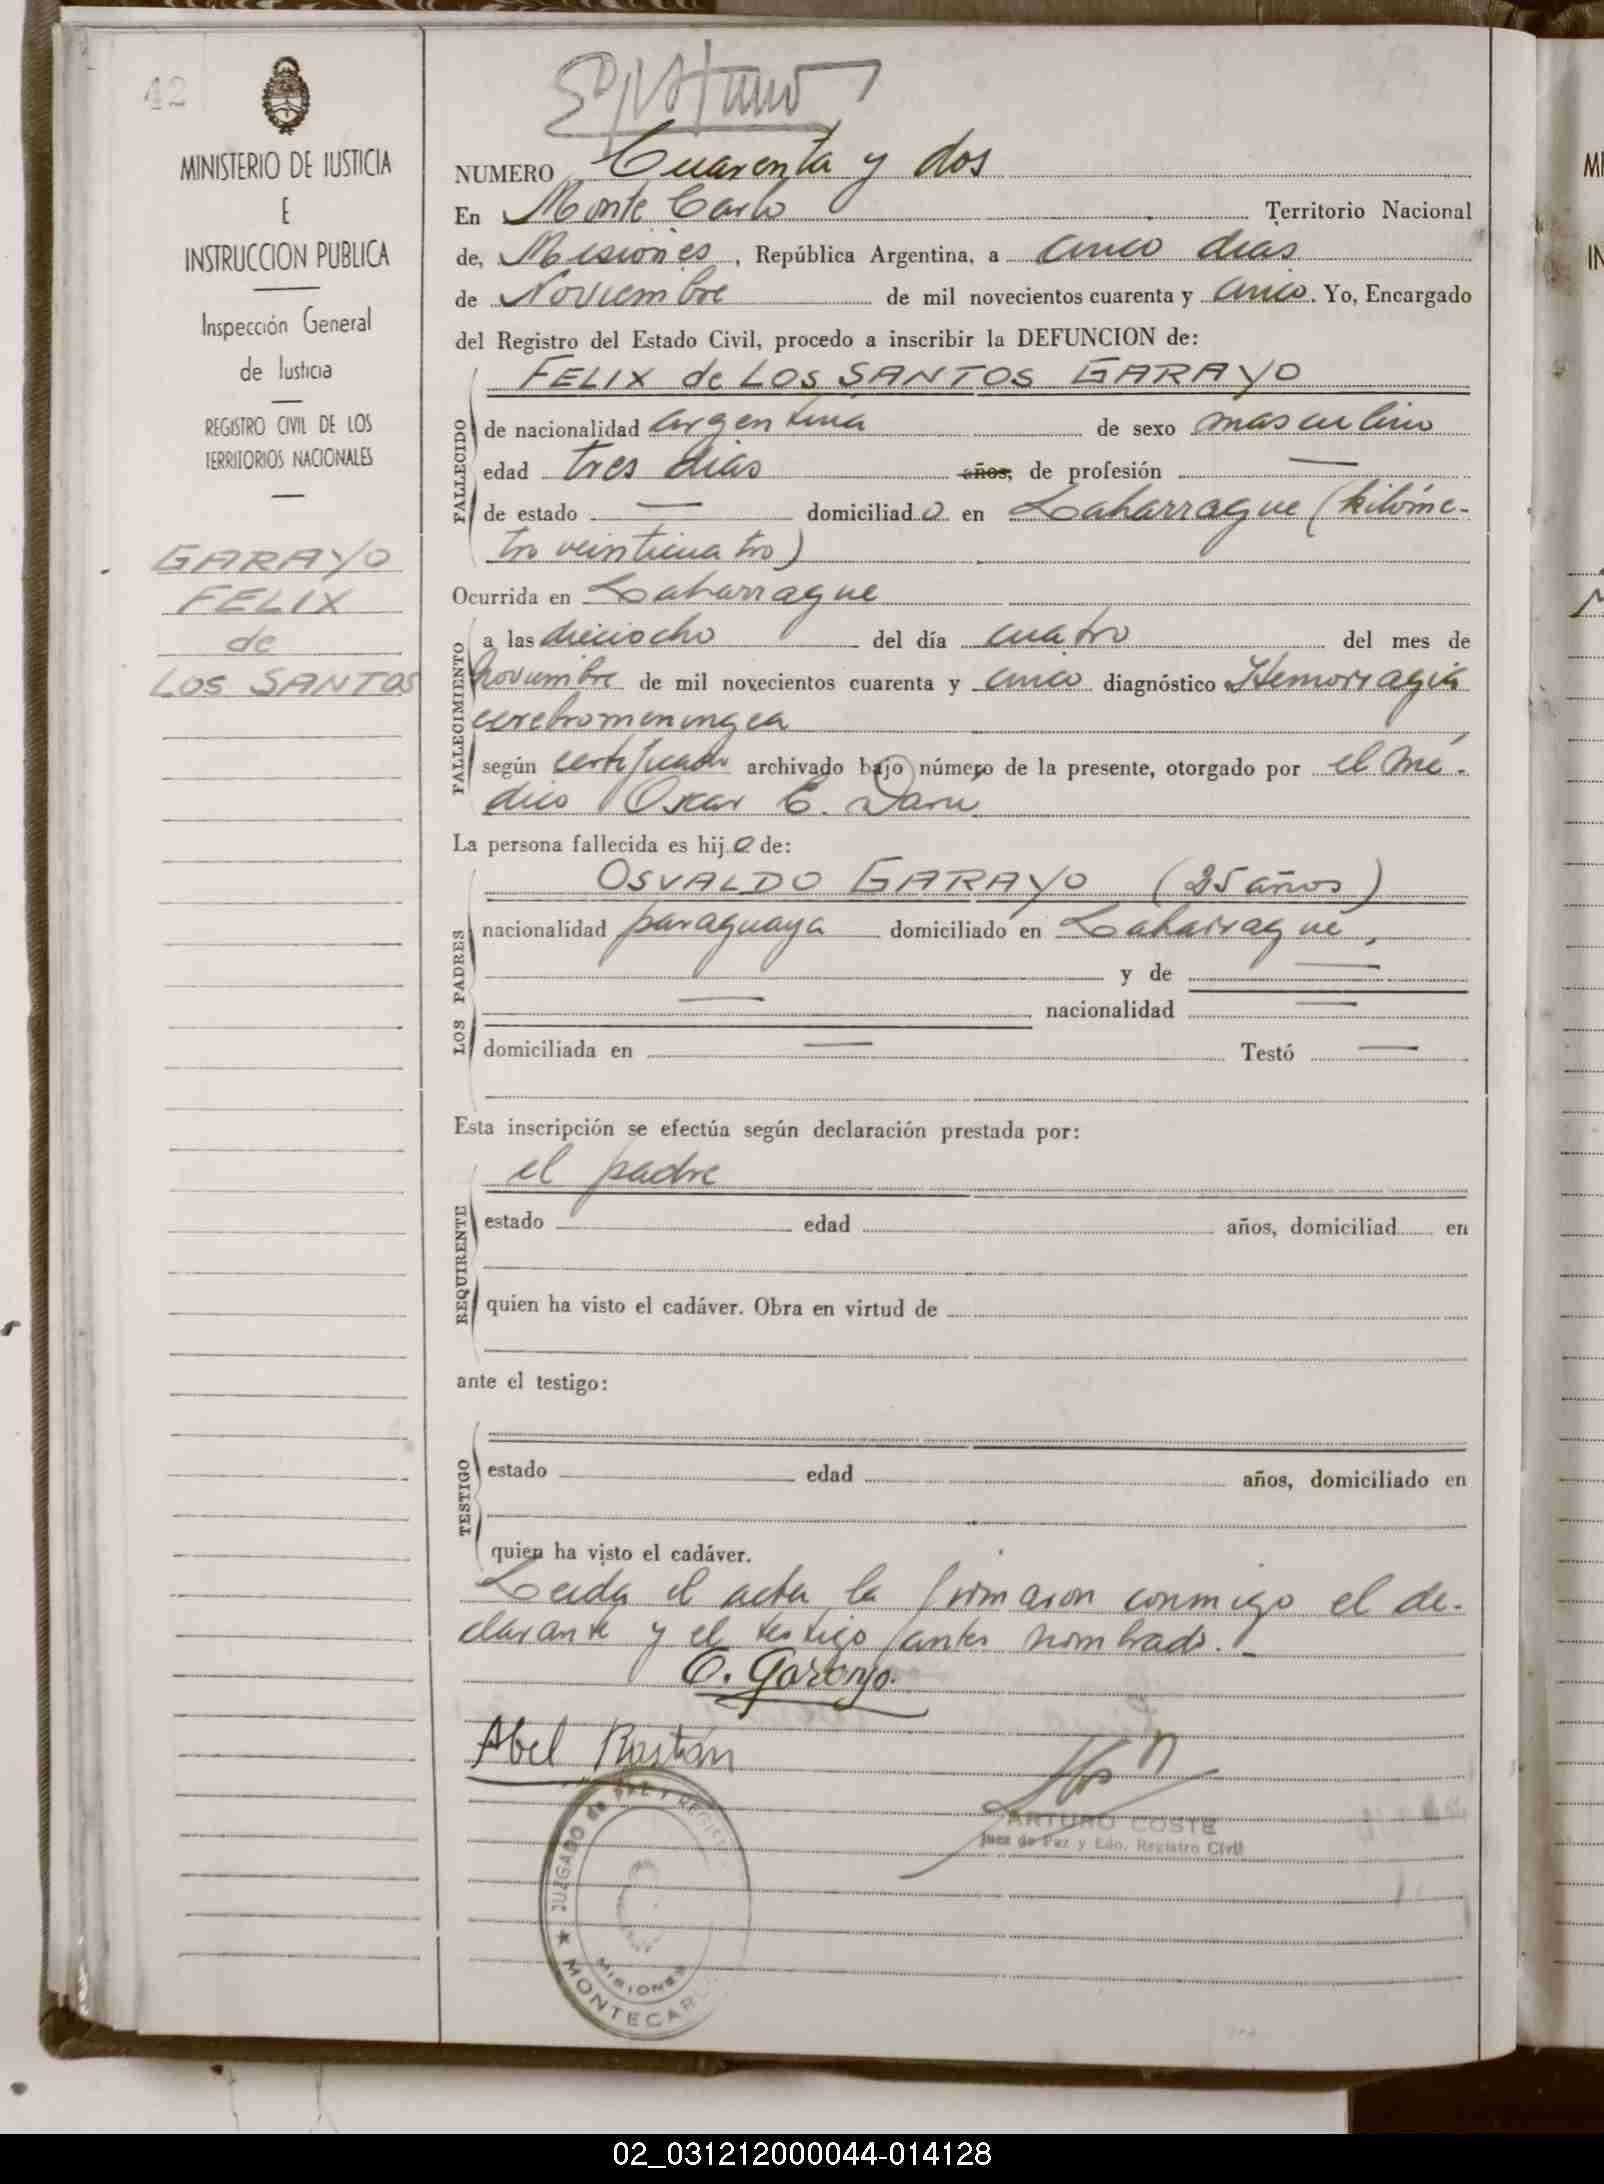 42
MINISTERIO DE JUSTICIA
E
INSTRUCCION PUBLICA
Inspección General
de Justicia
REGISTRO CIVIL DE LOS
TERRITORIOS NACIONALES
GARAYO
FELIX
de
LOS SANTOS
NUMERO Cuarenta y dos
En Monte Carlo Territorio Nacional
de, Misiones, República Argentina, a cinco dias
de Noviembre de mil novecientos cuarenta y cinco. Yo, Encargado
del Registro del Estado Civil, procedo a inscribir la DEFUNCION de:
FELIX de LOS SANTOS GARAYO
FALLECIDO
de nacionalidad argentina de sexo masculino
edad tres dias años, de profesión —
de estado — domiciliado en Laharrague (kilóme-
tro veinticuatro)
Ocurrida en Laharrague
FALLECIMIENTO
a las dieciocho del día cuatro del mes de
noviembre de mil novecientos cuarenta y cinco diagnóstico Hemorragia
cerebromeningea
según certificado archivado bajo número de la presente, otorgado por el mé-
dico Oscar C. Daru
La persona fallecida es hijo de:
LOS PADRES
OSVALDO GARAYO (25 años)
nacionalidad paraguaya domiciliado en Laharrague,
y de —
— nacionalidad —
domiciliada en — Testó —
Esta inscripción se efectúa según declaración prestada por:
REQUIRENTE
el padre
estado edad años, domiciliad en
quien ha visto el cadáver. Obra en virtud de
ante el testigo:
TESTIGO
estado edad años, domiciliado en
quien ha visto el cadáver.
Leida el acta la firmaron conmigo el de-
clarante y el testigo antes nombrado.
O. Garayo.
Abel Rastán
ARTURO COSTE
Juez de Paz y Edo. Registro Civil
JUZGADO de PAZ Y REGIST
MISIONES
MONTECARL
MI
IN
02_031212000044-014128